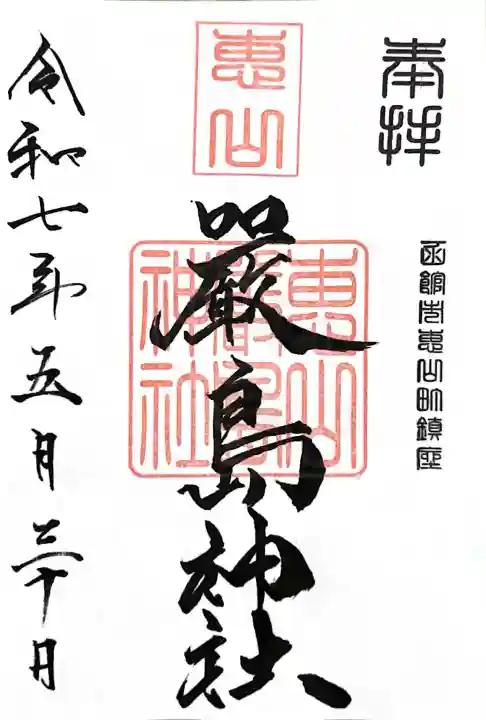 奉拝
函館市恵山町鎮座
惠山
嚴島神社
惠山
嚴島
神社
令和七年五月三十日